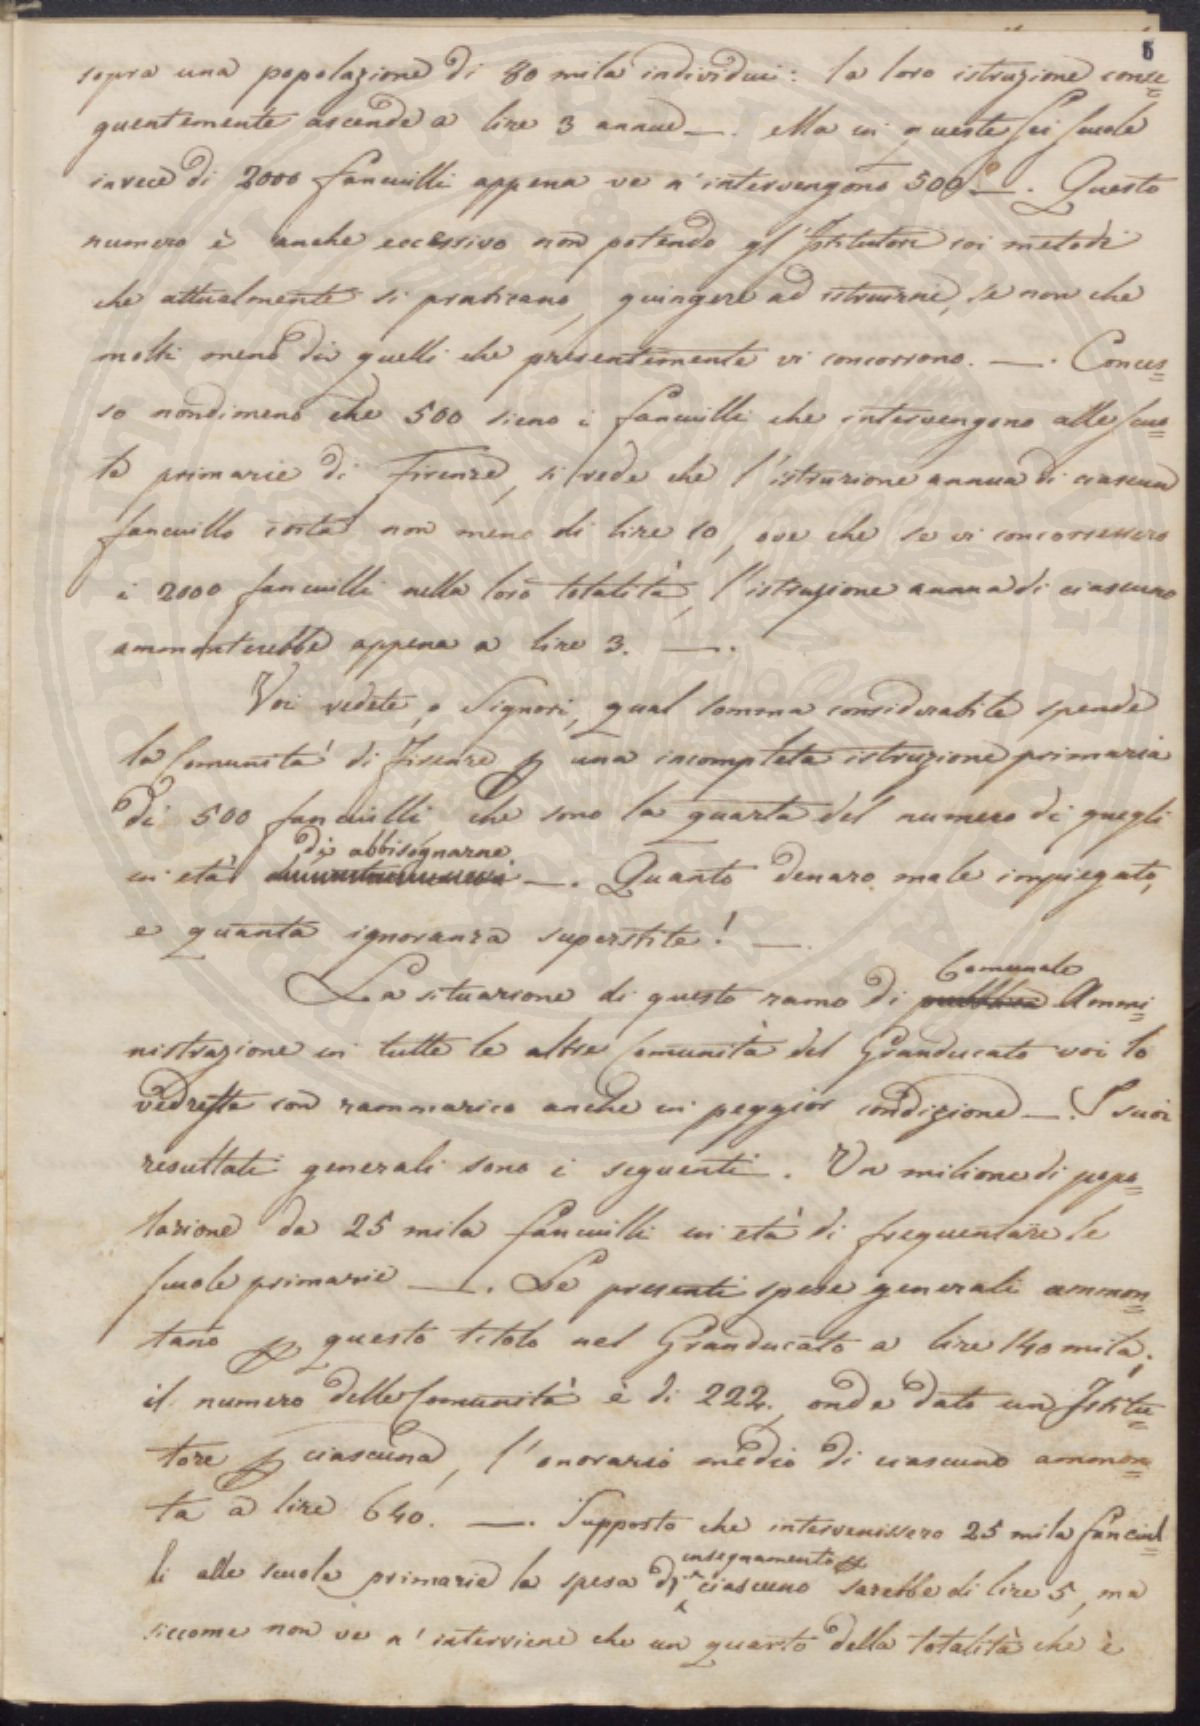 5
sopra una popolazione di 80 mila individui: la loro istruzione conse=
guentemente ascende a lire 3 annue —. Ma in queste sei scuole
invece di 2000 fanciulli appena ve n'intervengono 500 —. Questo
numero è anche eccessivo non potendo gl'Istitutori coi metodi
che attualmente si praticano, giungere ad istruirne, se non che
molti meno di quelli che presentemente vi concorrono. —. Conces=
so nondimeno che 500 sieno i fanciulli che intervengono alle scuo=
le primarie di Firenze, si vede che l'istruzione annua di ciascun
fanciullo costa non meno di lire 10, ove che se vi concorressero
i 2000 fanciulli nella loro totalità, l'istruzione annua di ciascuno
ammonterebbe appena a lire 3. —.
Voi vedete, o Signori, qual somma considerabile spende
la Comunità di Firenze p una incompleta istruzione primaria
di 500 fanciulli che sono la quarta del numero di quegli
di abbisognarne
in età —. Quanto denaro male impiegato,
e quanta ignoranza superstite! —.
Comunale
La situazione di questo ramo di pubblica Ammi=
nistrazione in tutte le altre Comunità del Granducato voi lo
vedreste con rammarico anche in peggior condizione —. I suoi
resultati generali sono i seguenti. Un milione di popo=
lazione da 25 mila fanciulli in età di frequentare le
scuole primarie —. Le presenti spese generali ammon=
tano p questo titolo nel Granducato a lire 140 mila;
il numero delle Comunità è di 222, onde dato un Istitu=
tore p ciascuna, l'onorario medio di ciascuno ammon=
ta a lire 640. —. Supposto che intervenissero 25 mila fanciul=
insegnamento p
li alle scuola primarie la spesa di ciascuno sarebbe di lire 5, ma
siccome non ve n'interviene che un quarto della totalità che è